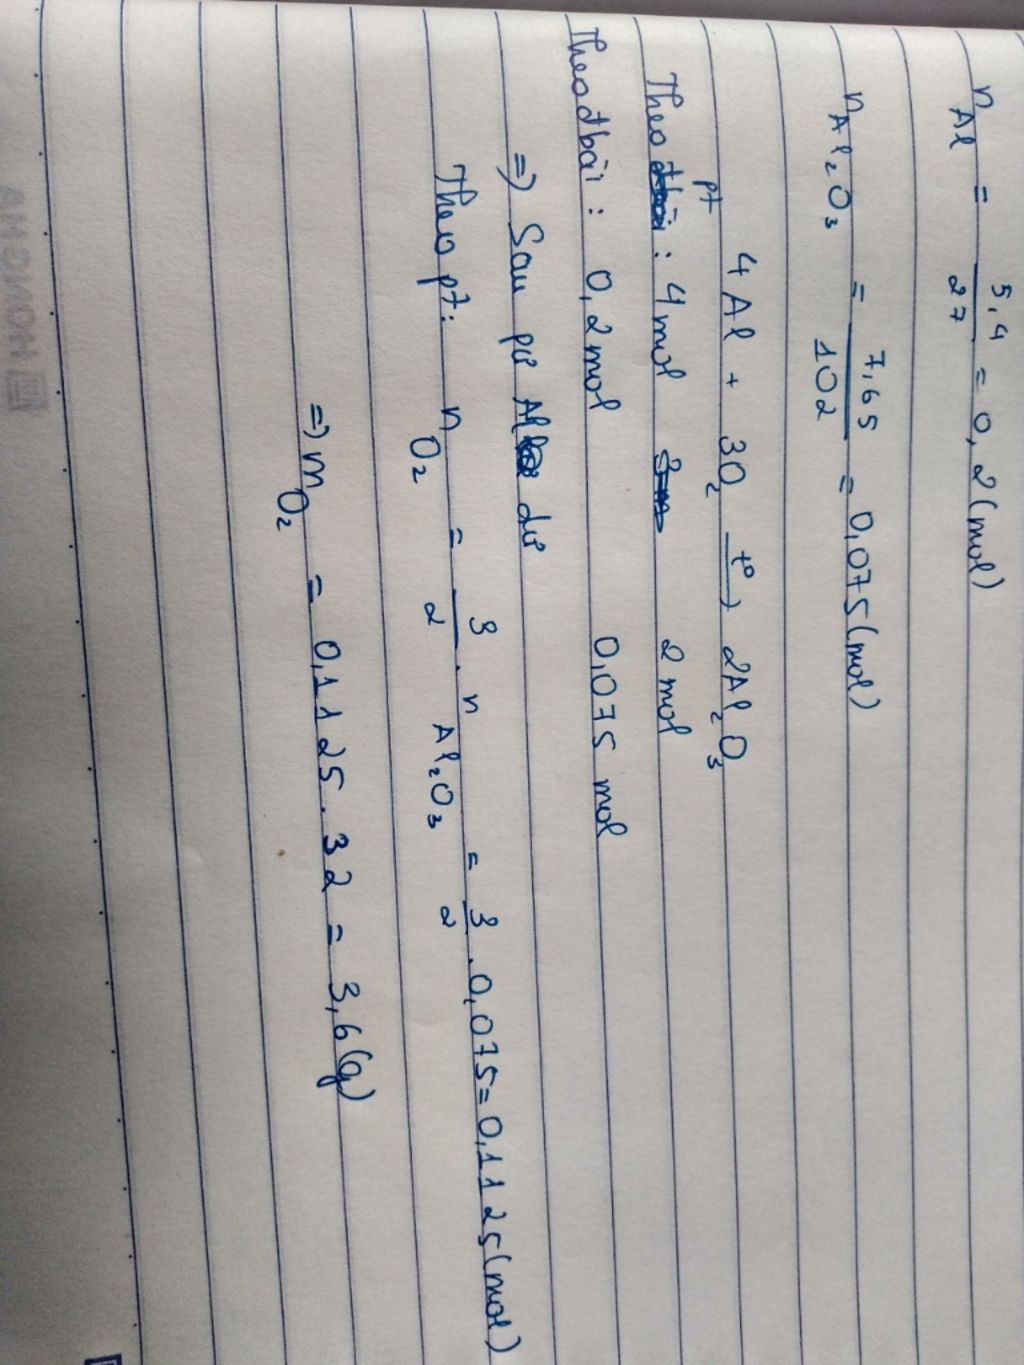 n Al = 5,4 / 27 = 0,2 (mol)
n Al₂O₃ = 7,65 / 102 = 0,075 (mol)
4 Al + 3O₂ t⁰→ 2Al₂O₃
Theo pt : 4 mol 2 mol
Theo đbài : 0,2 mol 0,075 mol
=) Sau pứ Al dư
Theo pt : n O₂ = 3/2 . n Al₂O₃ = 3/2 . 0,075 = 0,1125 (mol)
=) m O₂ = 0,1125 . 32 = 3,6 (g)